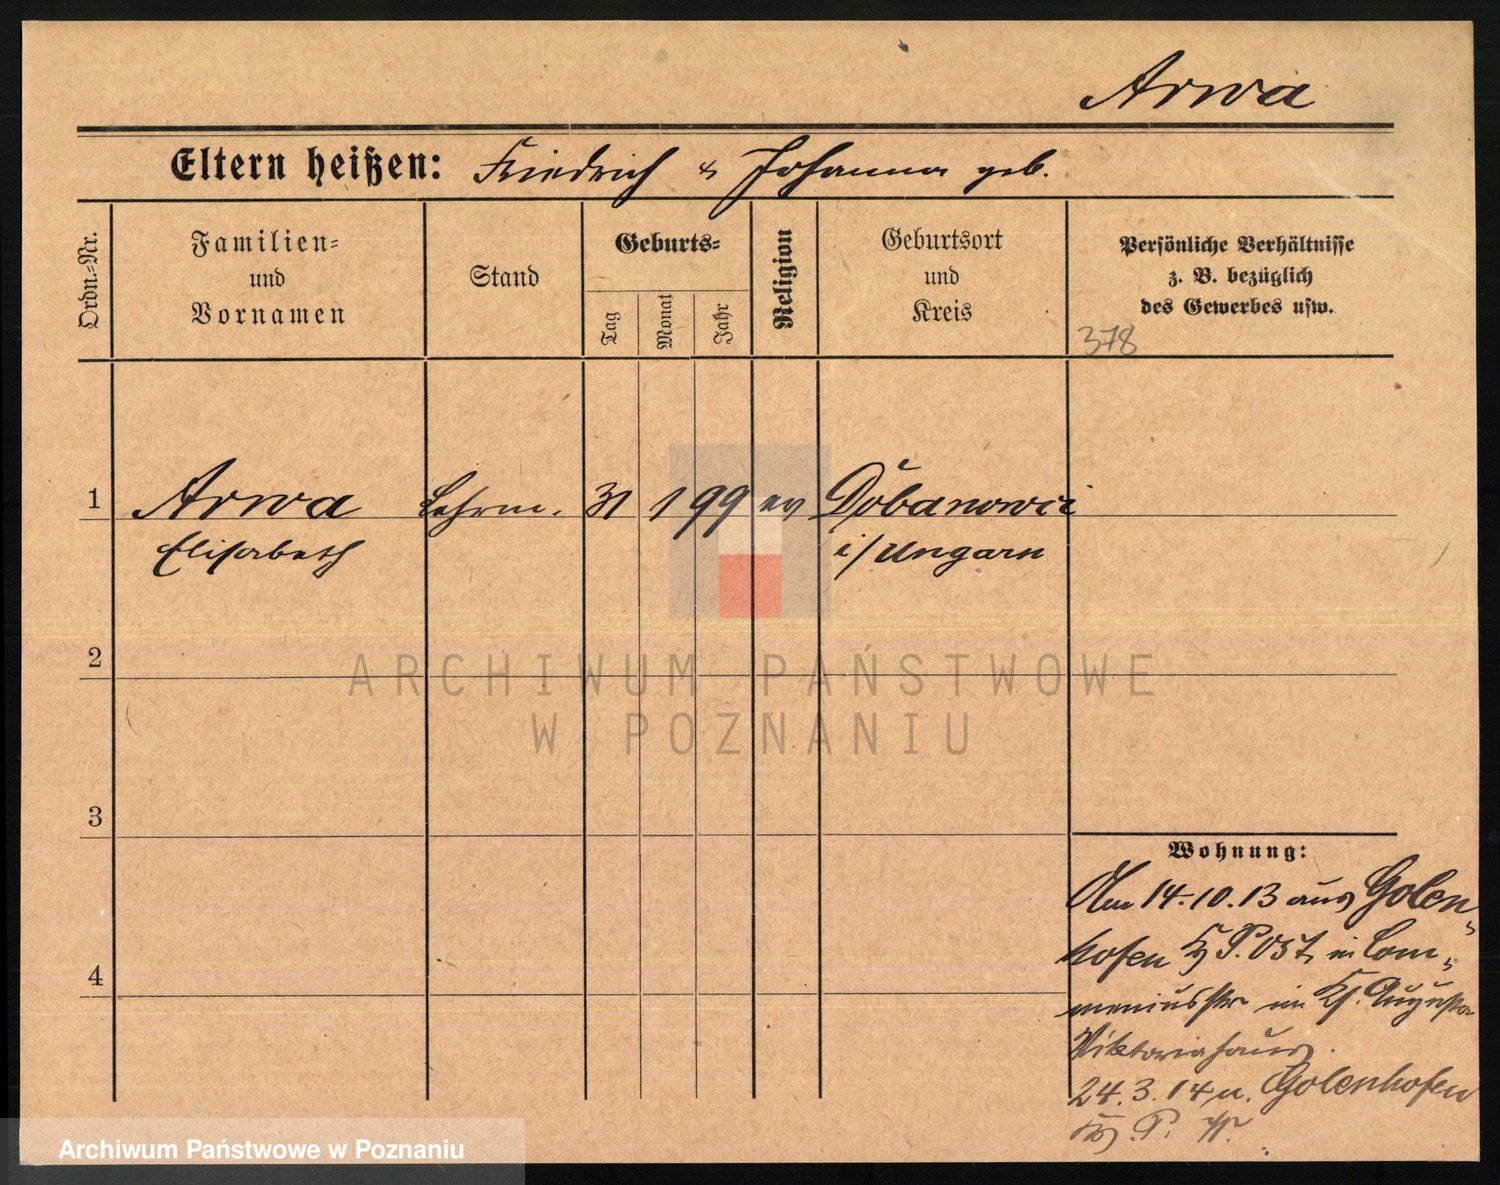 Arwa
Eltern heißen: Friedrich & Johanna geb.
Ordn.=Nr.
Familien=
und
Vornamen
Stand
Geburts=
Tag
Monat
Jahr
Religion
Geburtsort
und
Kreis
Persönliche Verhältnisse
z. B. bezüglich
des Gewerbes usw.
378
1 Arwa Lehrm. 31 1 99 ev Dŏbanowci
Elisabeth i/Ungarn
2
3
4
ARCHIWUM PAŃSTWOWE
W POZNANIU
Wohnung:
Am 14.10.13 aus Golen=
hofen Kr P. Ost in Com=
meniusstr im Ks. Augusta
Viktoriahaus.
24.3.14 n. Golenhofen
Kr. P. W.
Archiwum Państwowe w Poznaniu